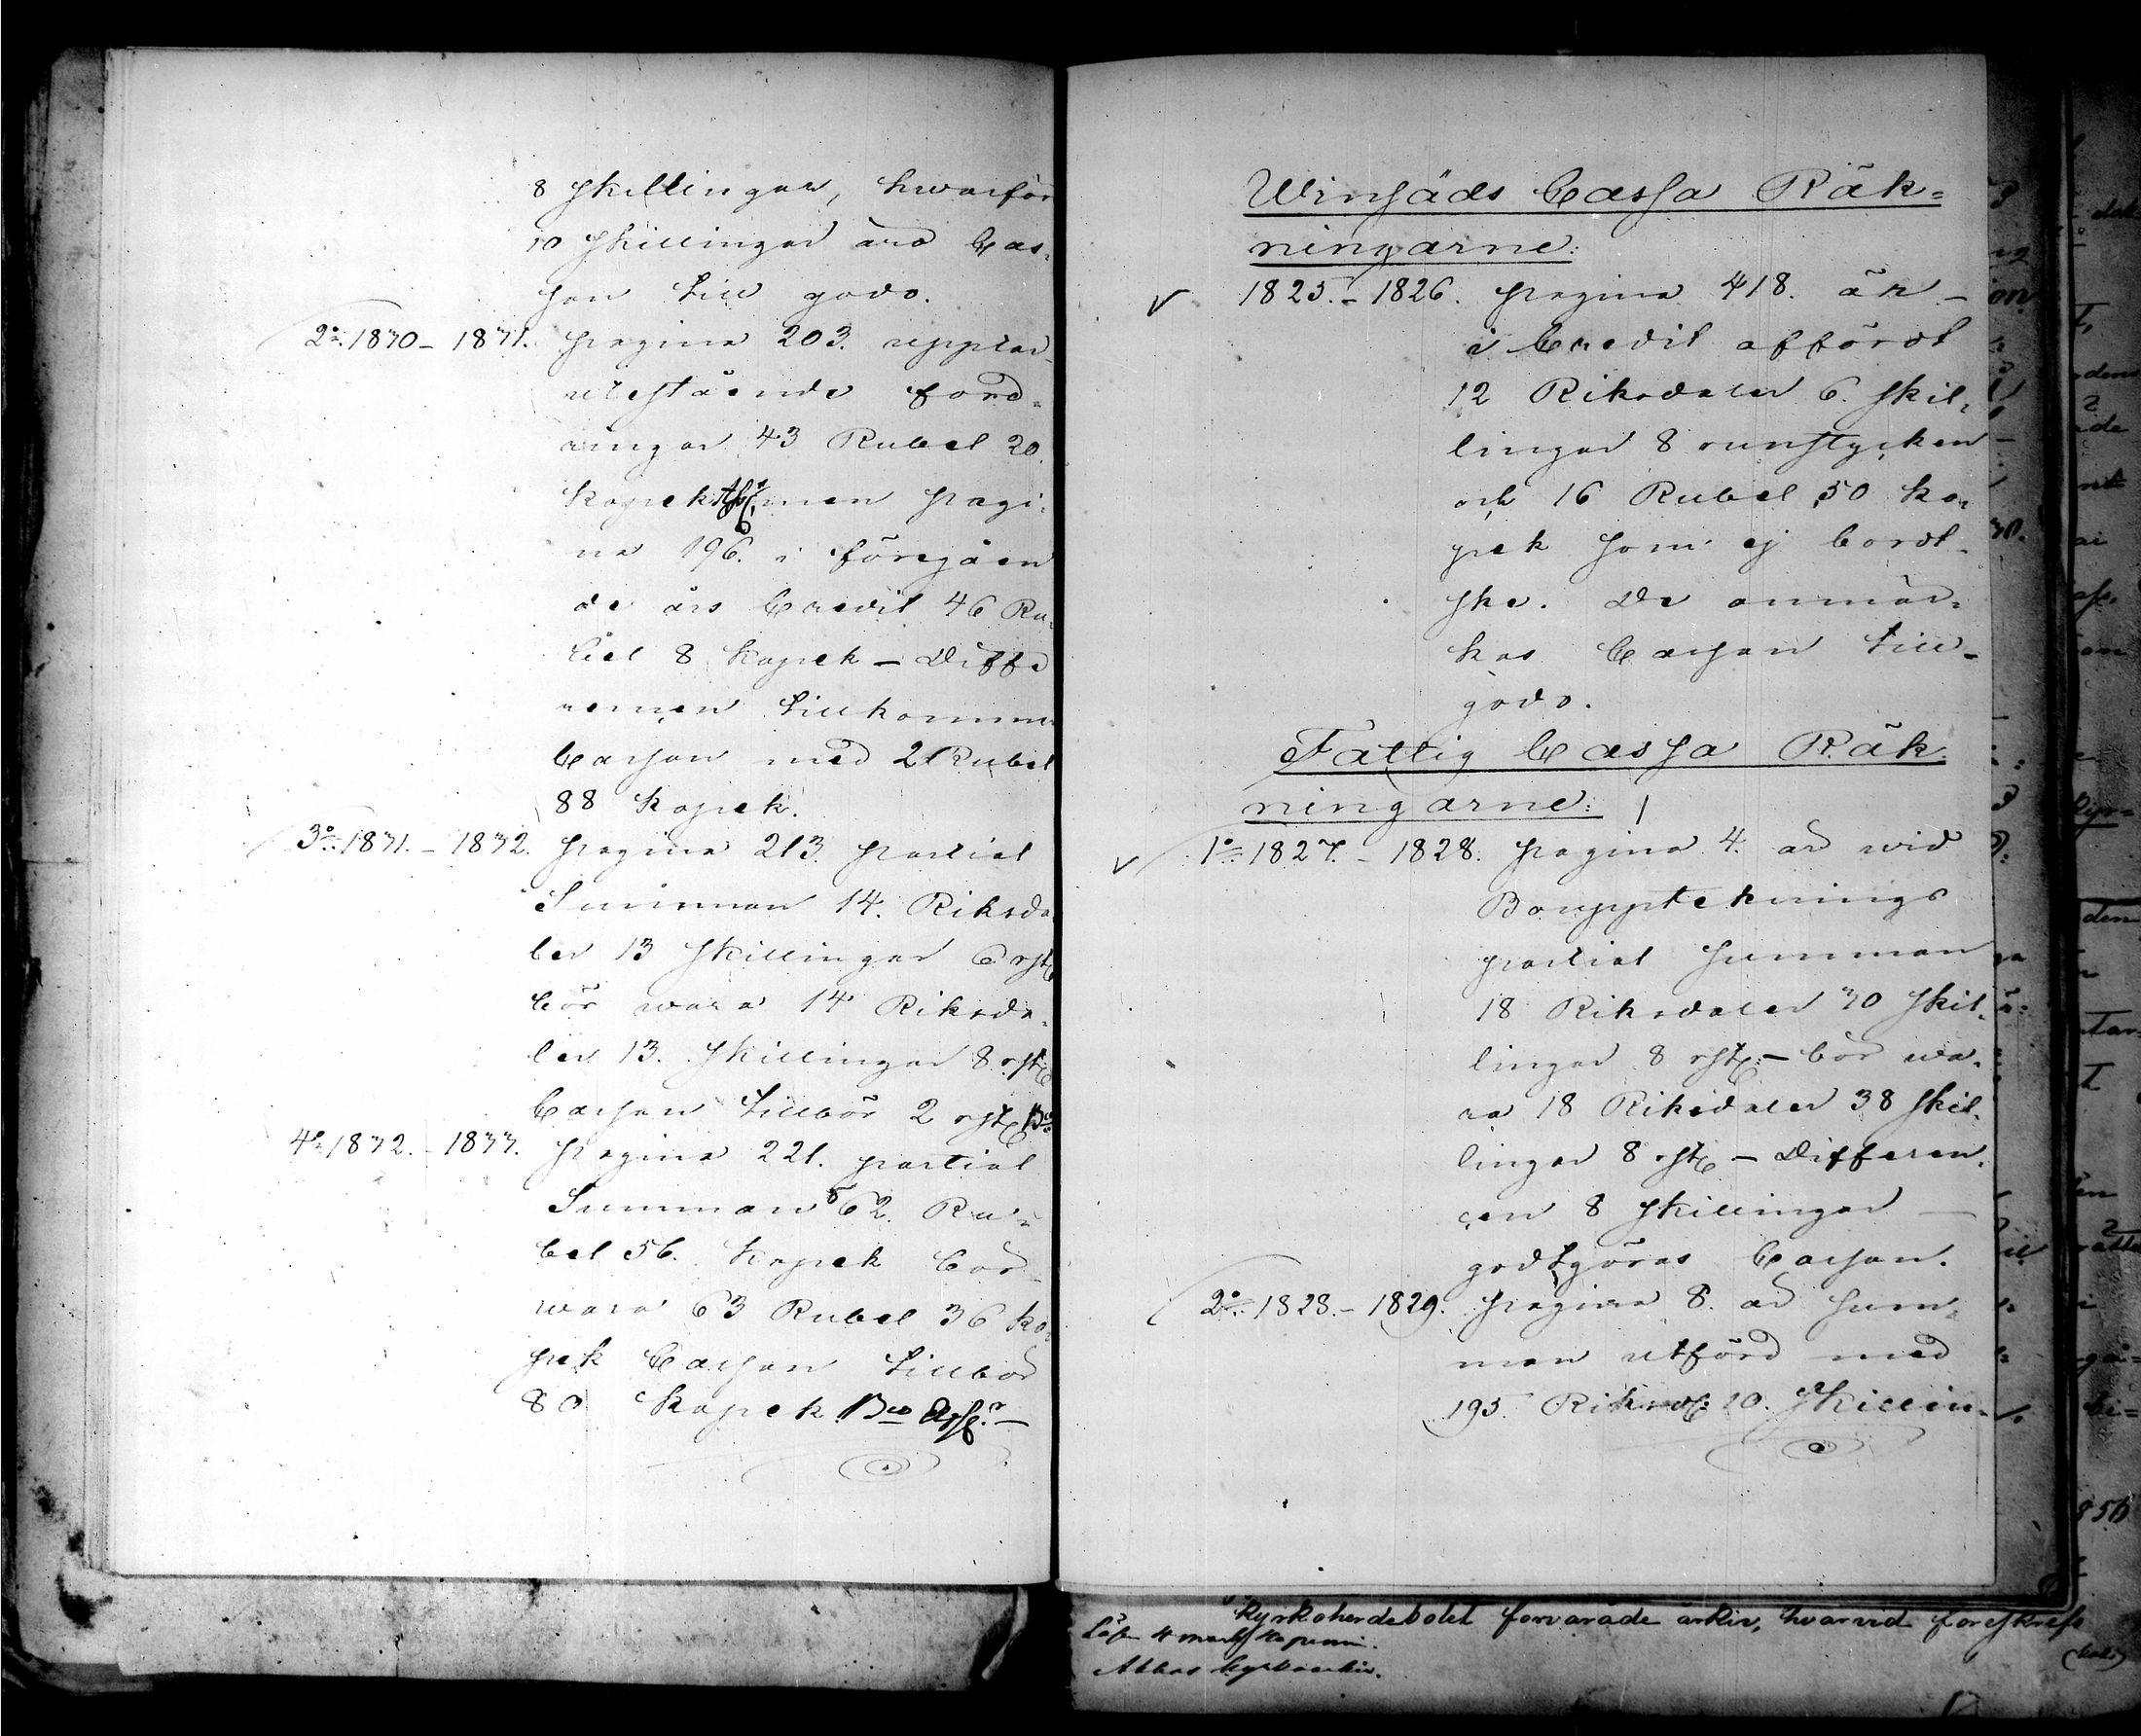 8 skillingar, hwarför
10 skillingar äro Cas-
san till godo.
2o: 1830 - 1831. pagina 203. upptar
utestående ford-
ringar 43 Rubel 20.
kopek men pagi-
na 196. i föregåen
de års Credit 46 Ru-
bel 8 kopek - Diffe
rencen tillkommer
Cassan med 2 Rubel
88 kopek.
3o: 1831. - 1832. pagina 213. partial
Summan 14. Riksda
ler 13 skillingar 6 rst
bör wara 14 Riksda-
ler 13. skillingar 8 rst
Cassan tillbör 2 rst Bco
4o: 1832. - 1833. pagina 221. partial
Summan 62. Ru-
bel 56. kopek bör
wara 63 Rubel 36 ko-
pek Cassan tillbör
80 kopek Bco Ass.
Winsäds Cassa Räk-
ningarne:
1825. - 1826. pagina 418. är -
i Credit affördt
12 Riksdaler 6. skil-
lingar 8 runstycken
och 16 Rubel 50 ko-
pek som ej bordt
ske. De anmär-
kas Cassan till-
godo.
Fattig Cassa Räk-
ningarne:
1o: 1827. - 1828. pagina 4. är wid
Bouppteknings
partial summan
18 Riksdaler 30 skil-
lingar 8 rst - bör wa-
ra 18 Riksdaler 38 skil-
lingar 8 rst - Differen-
çen 8 skillingar -
godtgöras Cassan.
2o: 1828. - 1829. pagina 8. är sum-
man utförd med
195. Riksd: 10. skillin-
kyrkoherdebolet forvarade arkiv, hvarvid foreskrefs